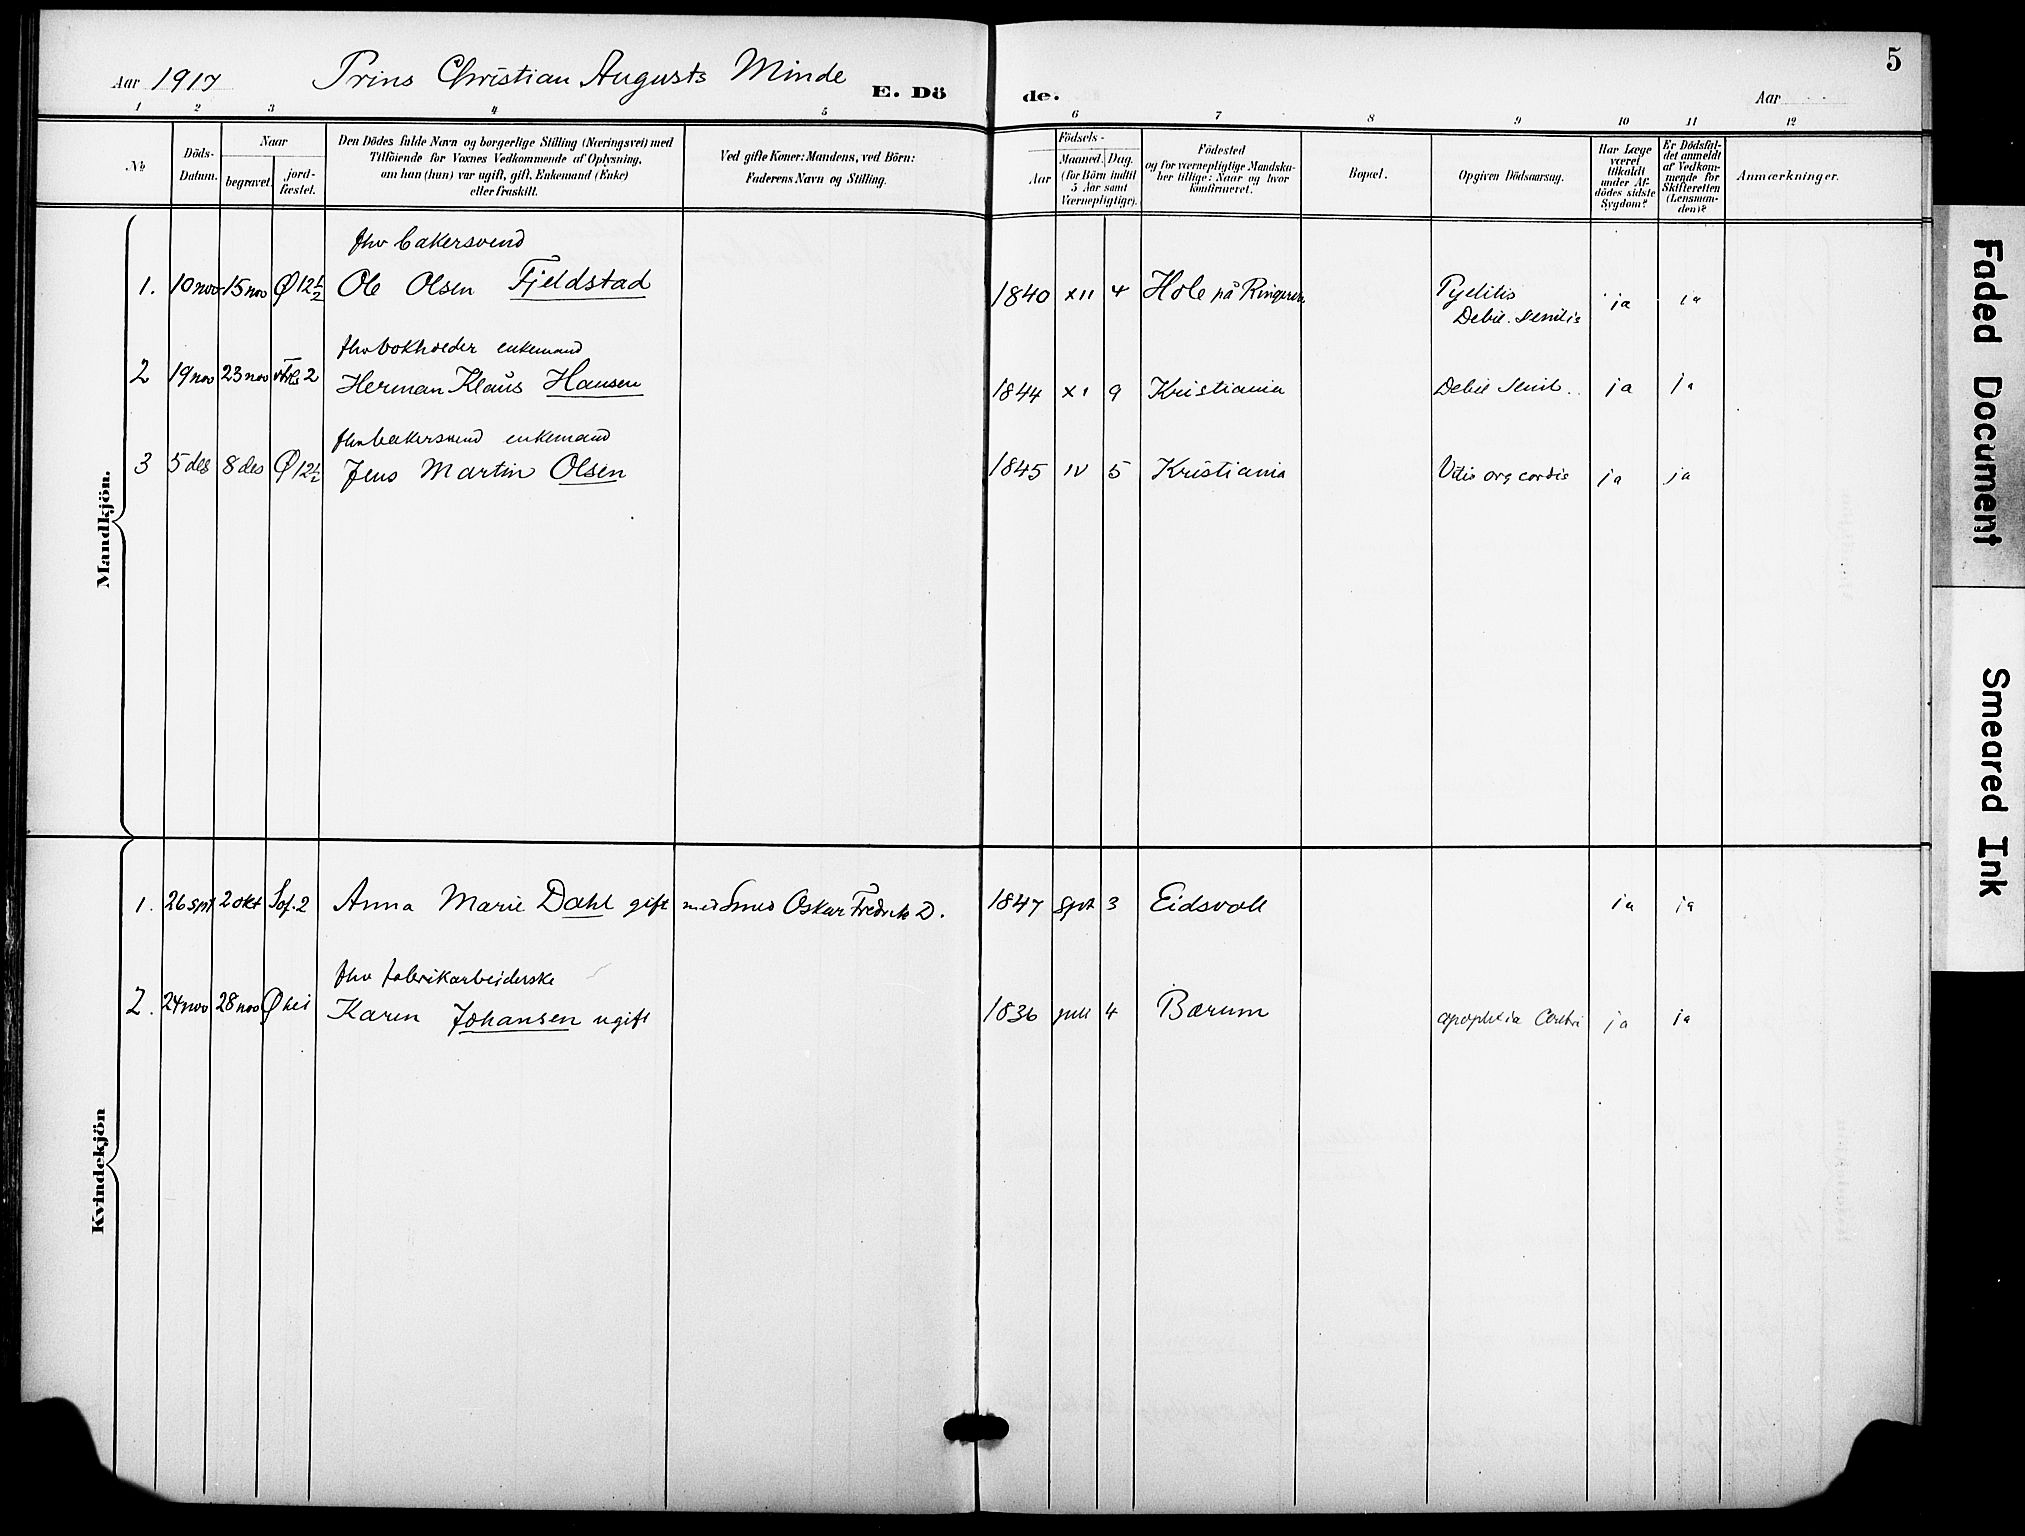 5
Aar 1917 Prins Christian Augusts Minde E. Dö de. Aar
1 2 3 4 5 6 7 8 9 10 11 12
No
Döds-
Datum.
Naar
begravet.
jord-
fæstet.
Den Dödes fulde Navn og borgerlige Stilling (Næringsvei) med
Tilföiende for Voxnes Vedkommende af Oplysning,
om han (hun) var ugift, gift, Enkemand (Enke)
eller fraskilt.
Ved gifte Koner: Mandens, ved Börn:
Faderens Navn og Stilling.
Födsels-
Aar
Maaned. Dag.
(for Börn indtil
5 Aar samt
Værnepligtige).
Födested
og for værnepligtige Mandska-
ber tillige: Naar og hvor
konfirmeret.
Bopæl.
Opgiven Dödsaarsag.
Har Læge
været
tilkaldt
under Af-
dödes sidste
Sygdom?
Er Dödsfal-
det anmeldt
af Vedkom-
mende for
Skifteretten
(Lensman-
den)?
Anmærkninger.
Mandkjön.
fhv bakersvend
1. 10 nov 15 nov Ø 12½ Ole Olsen Fjeldstad 1840 XII 4 Hole på Ringerike Pyelitis ja ja
Debil. senilis
fhv bokholder enkemand
2 19 nov 23 nov 2 Herman Klaus Hansen 1844 XI 9 Kristiania Debil senil. ja ja
fhv bakersvend enkemand
3 5 des 8 des Ø 12½ Jens Martin Olsen 1845 IV 5 Kristiania Vitis org cordis ja ja
Kvindekjön
1. 26 spt 2 okt Sof. 2 Anna Marie Dahl gift med Smed Oskar Fredrik D. 1847 spt 3 Eidsvoll ja ja
fhv fabrikarbeiderske
2. 24 nov 28 nov Ø Karen Johansen ugift 1836 juli 4 Bærum apoplexia Cerebri ja ja
Faded Document
Smeared Ink